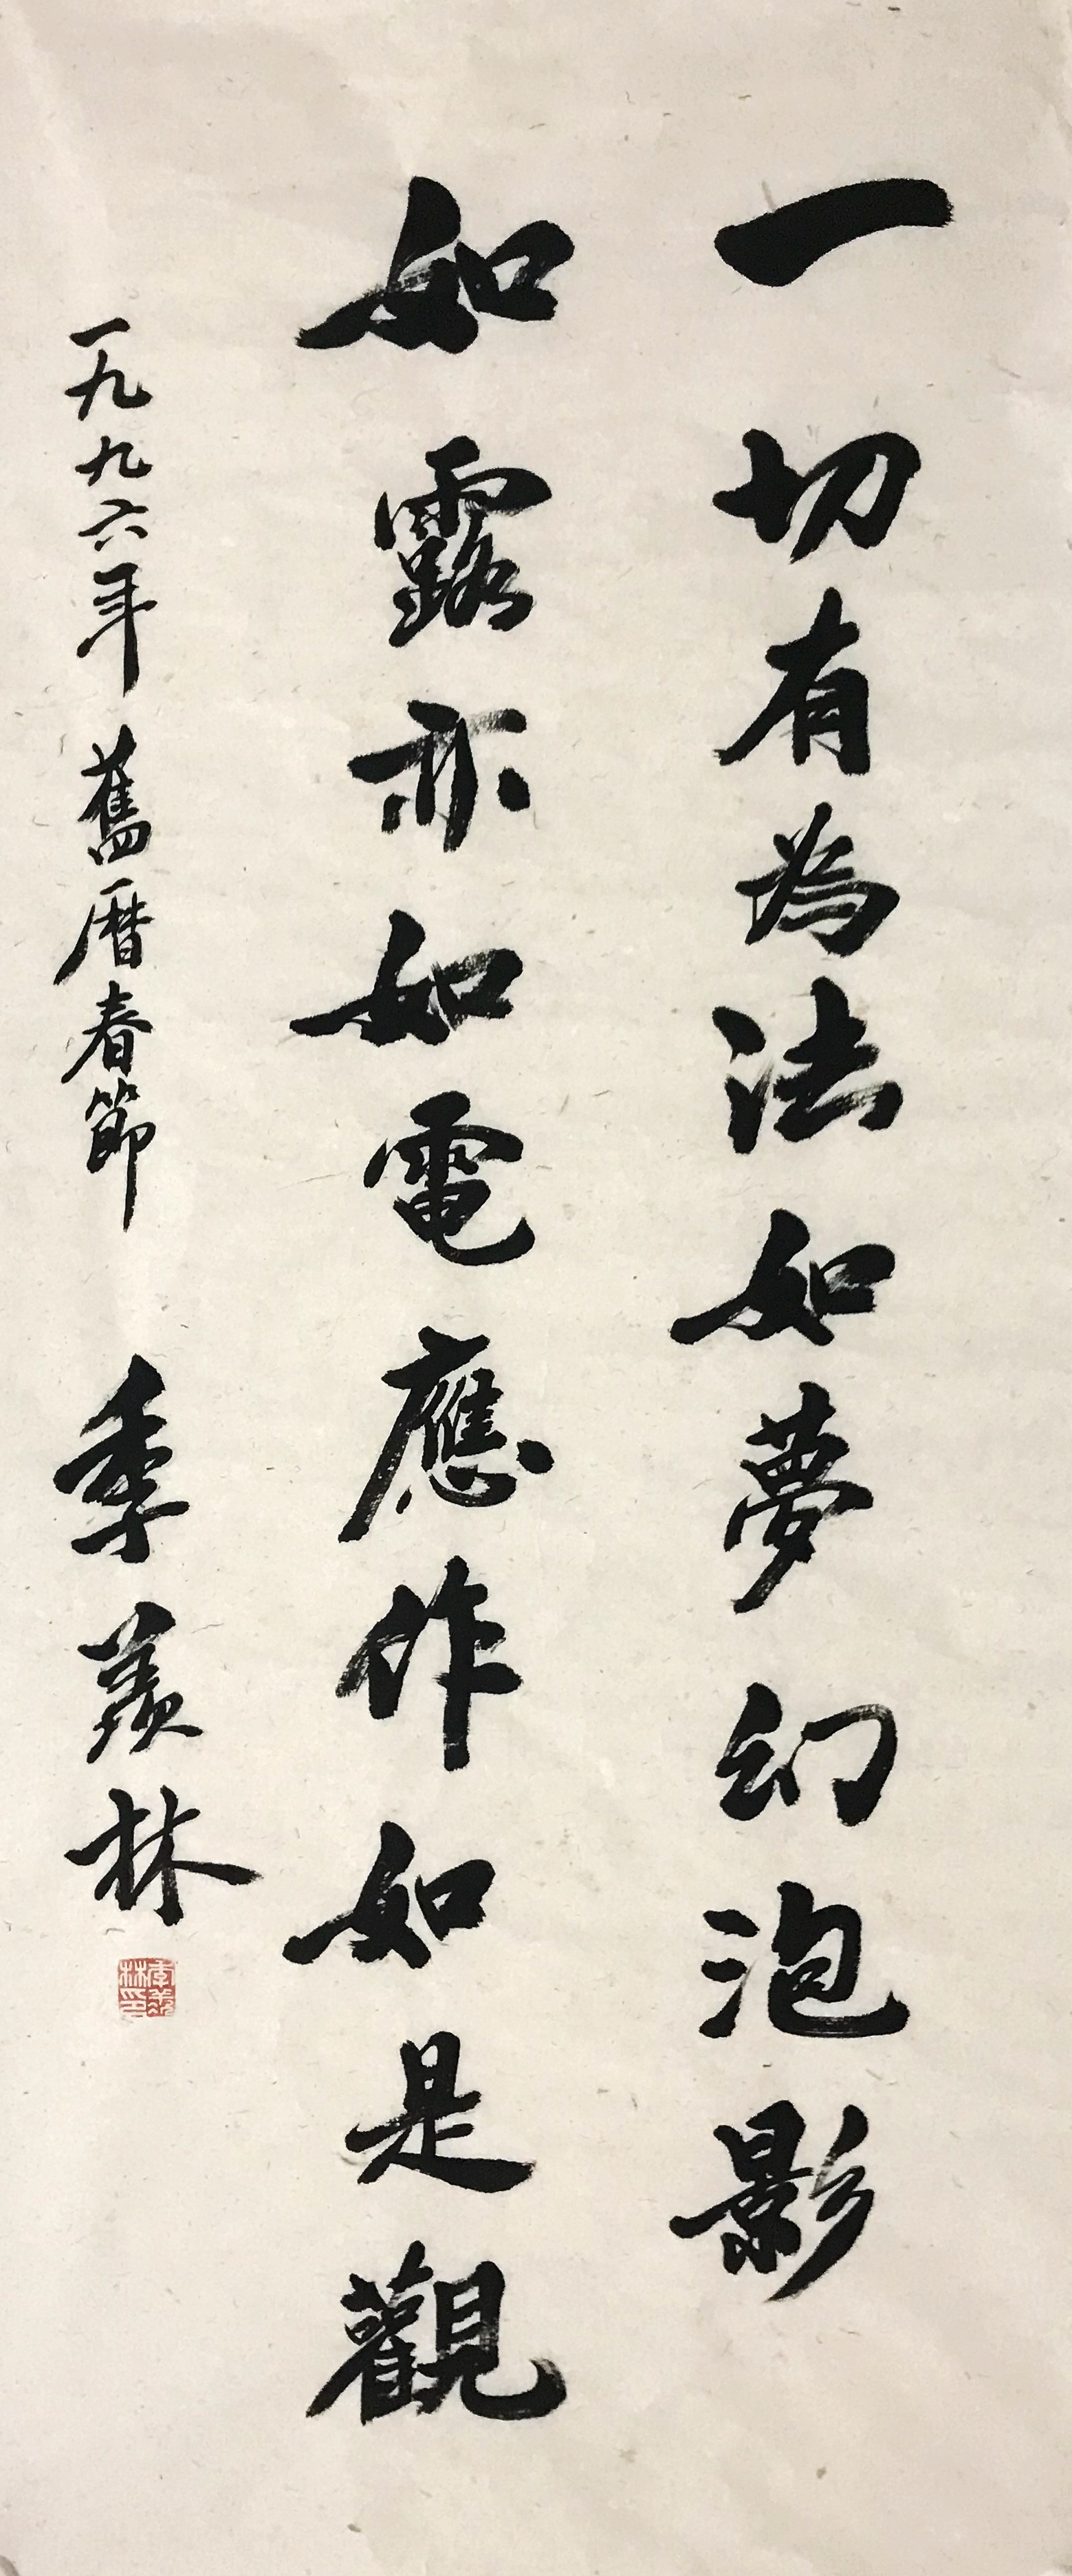 一切有為法如夢幻泡影
如露亦如電應作如是觀
一九九六年舊曆春節 季羨林
季羨林印